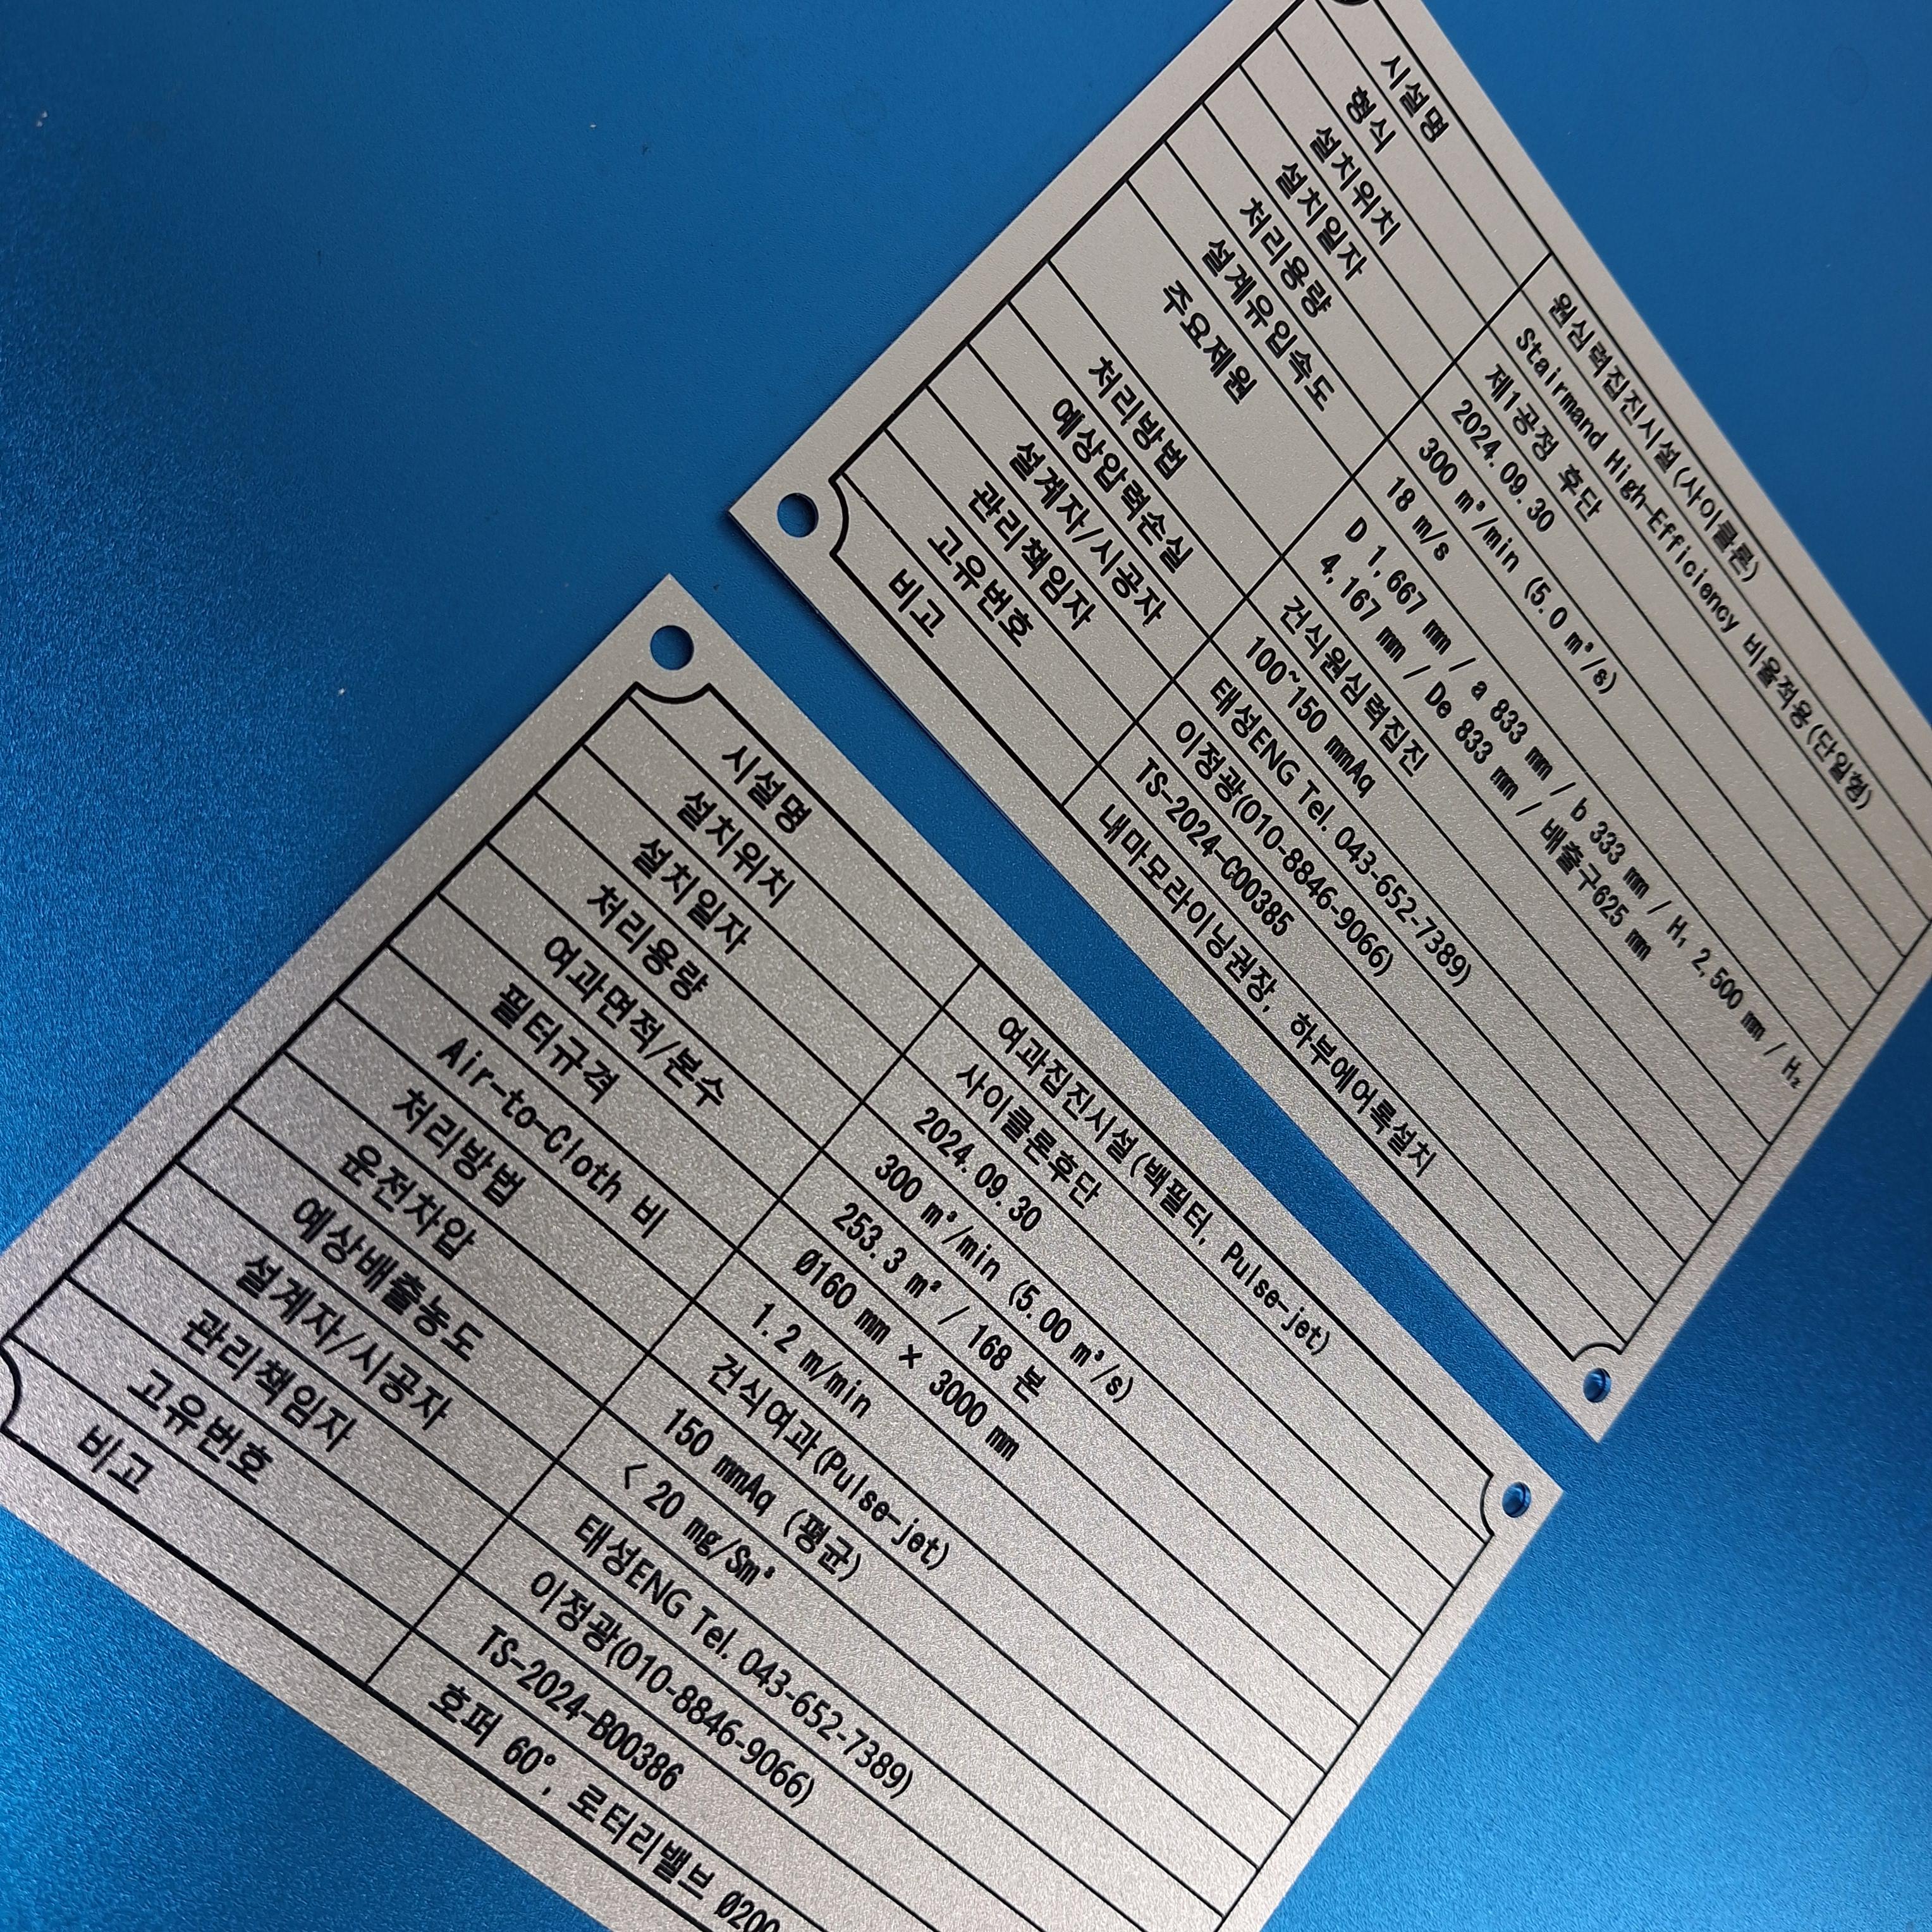 시설명 원심력집진시설(사이클론)
형식 Stairmand High-Efficiency 비율적용(단일형)
설치위치 제1공정 후단
설치일자 2024.09.30
처리용량 300 m³/min (5.0 m³/s)
설계유입속도 18 m/s
주요제원 D 1.667 mm / a 833 mm / b 333 mm / H₁ 2,500 mm / H₂
4,167 mm / De 833 mm / 배출구625 mm
처리방법 건식원심력집진
예상압력손실 100~150 mmAq
설계자/시공자 태성ENG Tel. 043-652-7389)
관리책임자 이정광(010-8846-9066)
고유번호 TS-2024-C00385
비고 내마모라이닝권장, 하부에어록설치
시설명 여과집진시설(백필터, Pulse-jet)
설치위치 사이클론후단
설치일자 2024.09.30
처리용량 300 m³/min (5.00 m³/s)
여과면적/본수 253.3 m² / 168 본
필터규격 Ø160 mm × 3000 mm
Air-to-Cloth 비 1.2 m/min
처리방법 건식여과(Pulse-jet)
운전차압 150 mmAq (평균)
예상배출농도 < 20 mg/Sm³
설계자/시공자 태성ENG Tel. 043-652-7389)
관리책임자 이정광(010-8846-9066)
고유번호 TS-2024-B00386
비고 호퍼 60°, 로터리밸브 Ø200